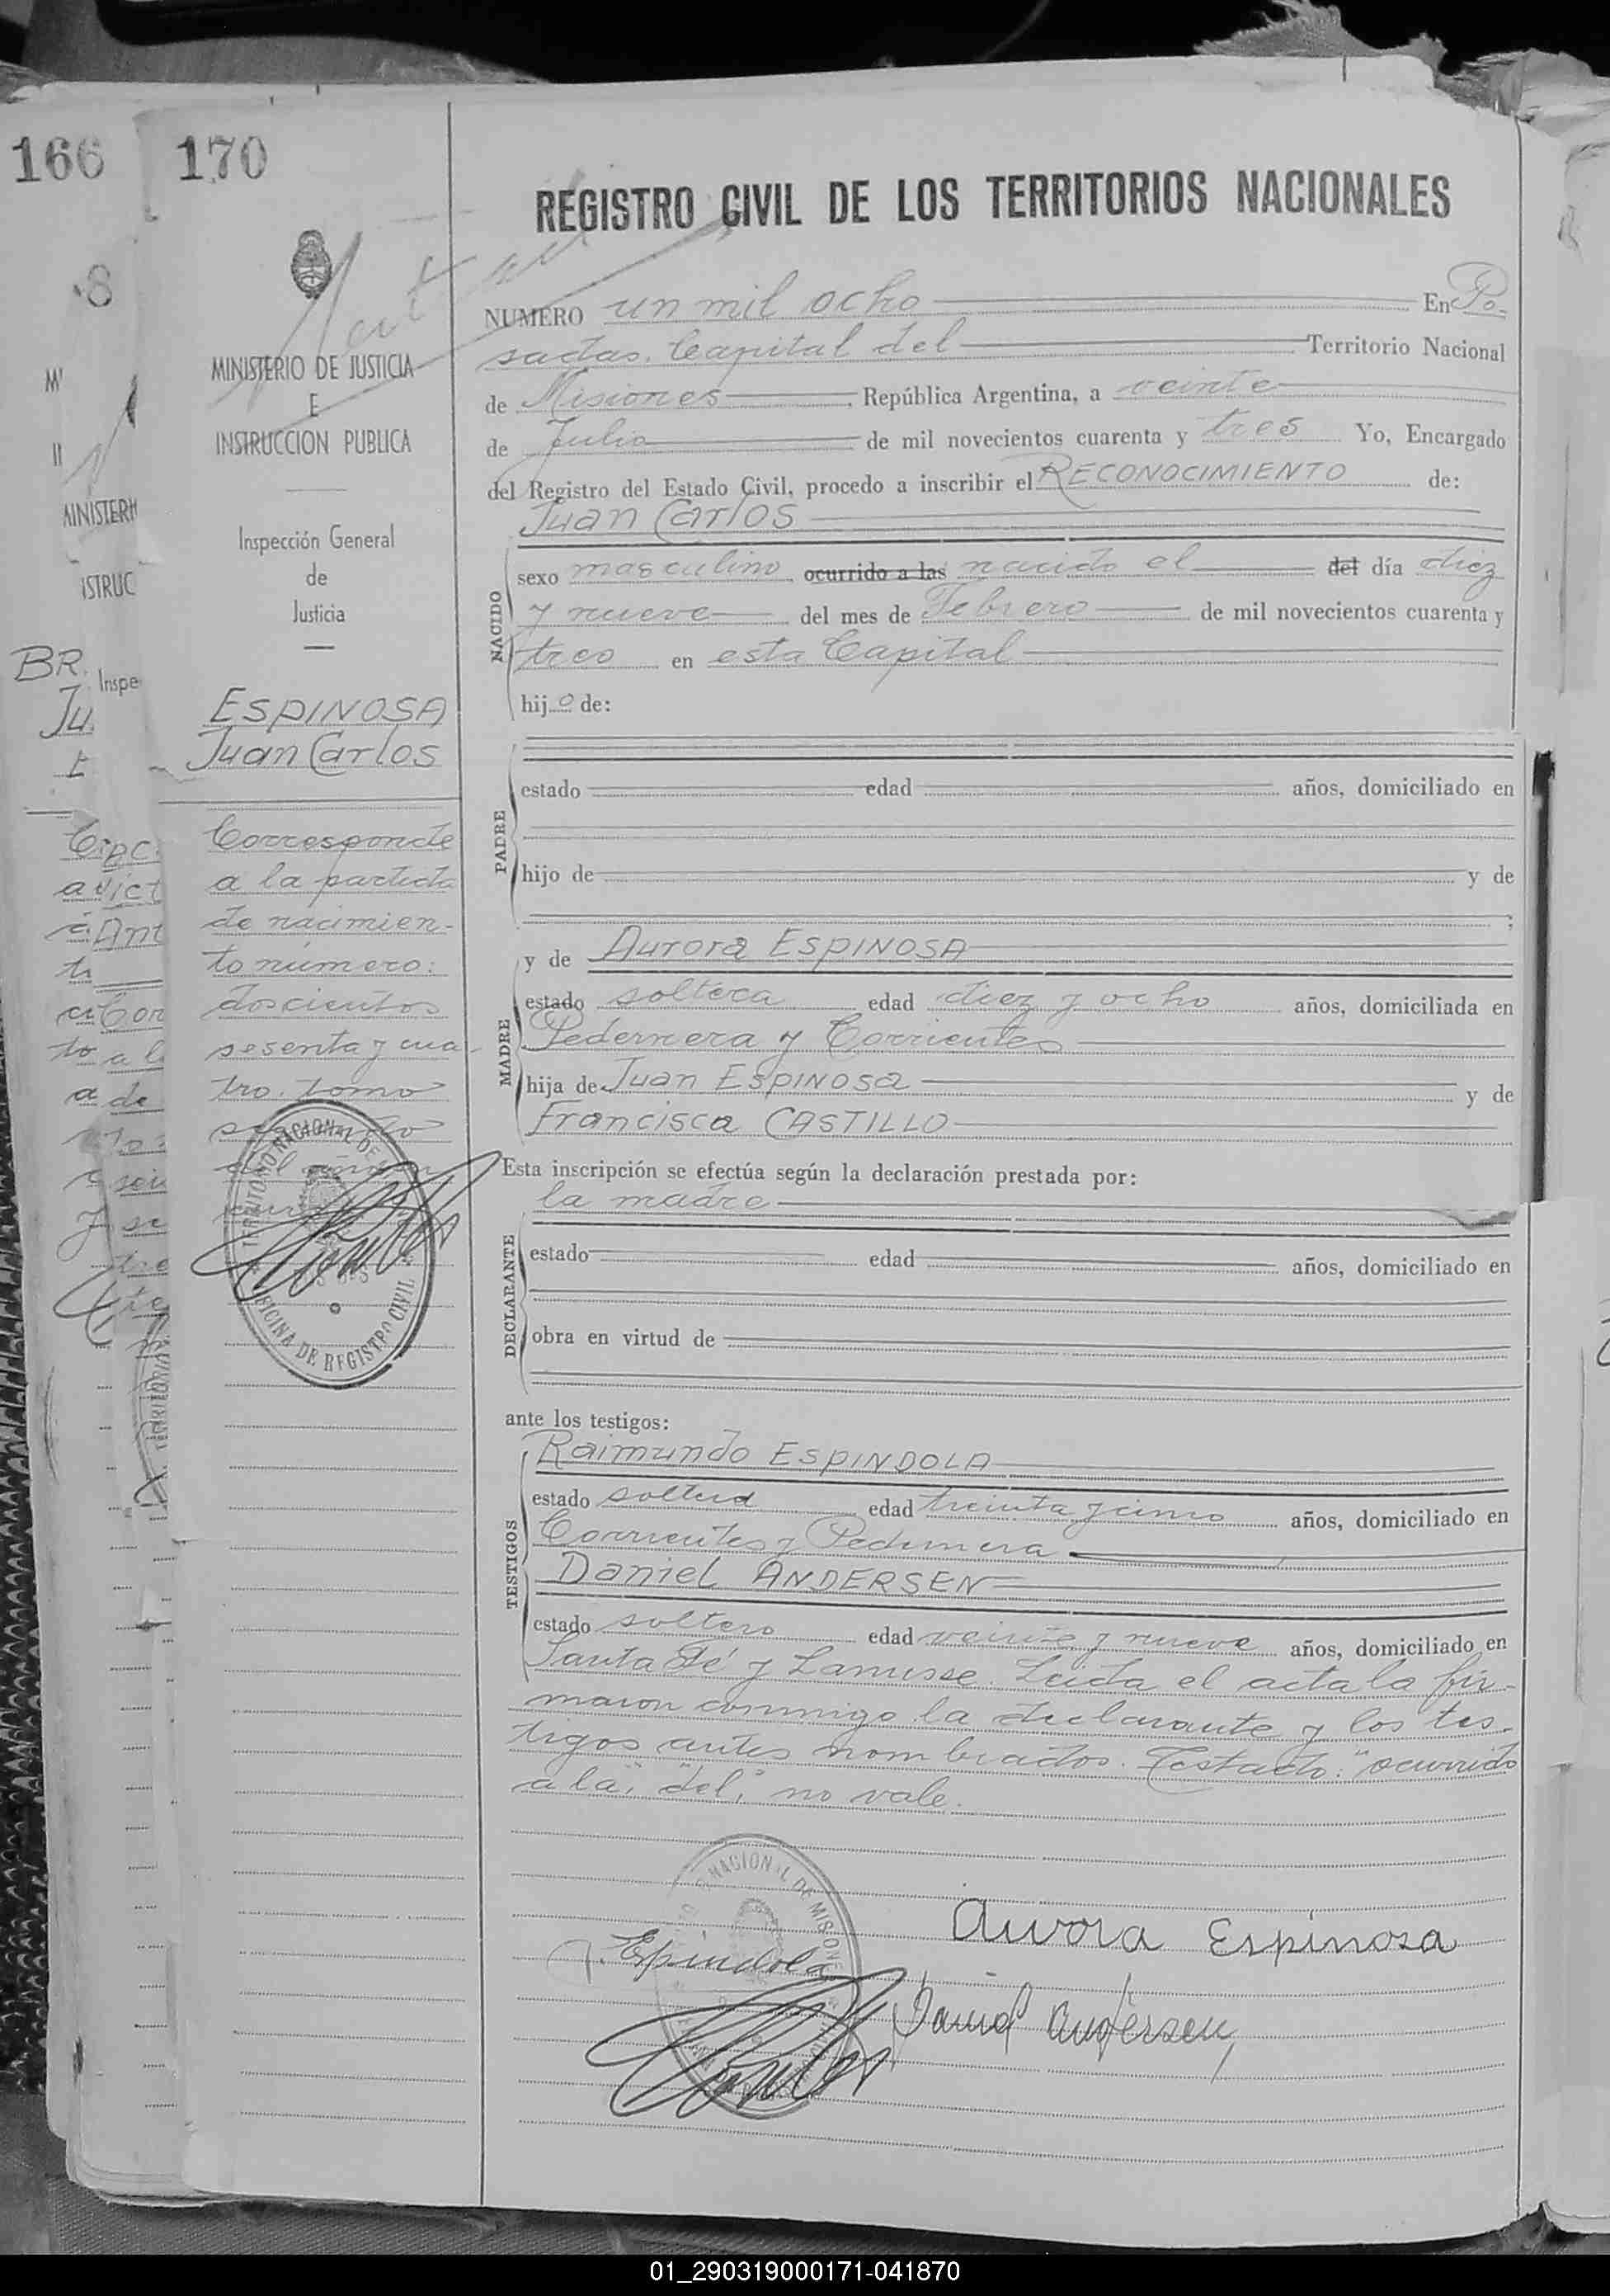 166
170
8
REGISTRO CIVIL DE LOS TERRITORIOS NACIONALES
NUMERO un mil ocho En Po-
sadas. Capital del Territorio Nacional
de Misiones, República Argentina, a veinte
de Julio de mil novecientos cuarenta y tres Yo, Encargado
del Registro del Estado Civil, procedo a inscribir el RECONOCIMIENTO de:
Juan Carlos
NACIDO
sexo masculino ocurrido a las nacido el del día diez
y nueve del mes de Febrero de mil novecientos cuarenta y
tres en esta Capital
hijo de:
PADRE
estado edad años, domiciliado en
hijo de y de
;
MADRE
y de Aurora ESPINOSA
estado soltera edad diez y ocho años, domiciliada en
Pedernera y Corrientes
hija de Juan ESPINOSA y de
Francisca CASTILLO
Esta inscripción se efectúa según la declaración prestada por:
la madre
DECLARANTE
estado edad años, domiciliado en
obra en virtud de
ante los testigos:
TESTIGOS
Raimundo ESPINDOLA
estado soltero edad treinta y cinco años, domiciliado en
Corrientes y Pedernera
Daniel ANDERSEN
estado soltero edad veinte y nueve años, domiciliado en
Santa Fé y Lanusse. Leida el acta la fir-
maron conmigo la declarante y los tes-
tigos antes nombrados. Testado: "ocurrido
a la", "del", no vale.
Aurora Espinosa
Espindola
Daniel Andersen
NACIONAL DE MISIONES
MINISTERIO DE JUSTICIA
E
INSTRUCCION PUBLICA
Inspección General
de
Justicia
ESPINOSA
Juan Carlos
Corresponde
a la partida
de nacimien-
to número:
doscientos
sesenta y cua-
tro. Tomo
segundo
TERRITORIO NACIONAL DE
OFICINA DE REGISTRO CIVIL
MINISTERI
STRUC
BR.
Inspe
Ju.
01_290319000171-041870